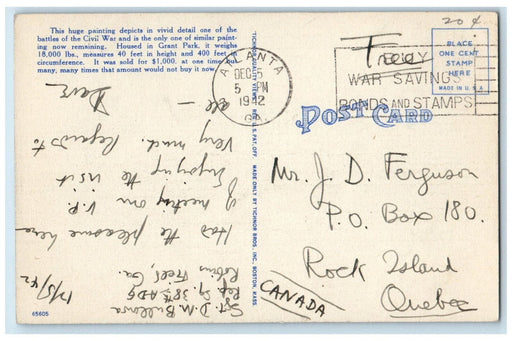 This huge painting depicts in vivid detail one of the
battles of the Civil War and is the only one of similar paint-
ing now remaining. Housed in Grant Park, it weighs
18,000 lbs., measures 40 feet in height and 400 feet in
circumference. It was sold for $1,000. at one time but
many, many times that amount would not buy it now.
Sgt. D. M.
Reg. 38th
Robins Field, Ga.
12/5/42
Had the pleasure here
of meeting our V.P.
Enjoying the visit
very much. Regards to
all —
Dave
65605
TICHNOR QUALITY VIEWS REG. U.S. PAT. OFF. MADE ONLY BY TICHNOR BROS. INC. BOSTON, MASS.
ATLANTA
DEC 5
5 PM
1942
GA.
BUY
WAR SAVINGS
BONDS AND STAMPS
Free
20¢
PLACE
ONE CENT
STAMP
HERE
MADE IN U.S.A.
POST CARD
Mr. J. D. Ferguson
P.O. Box 180.
Rock Island
Quebec
CANADA